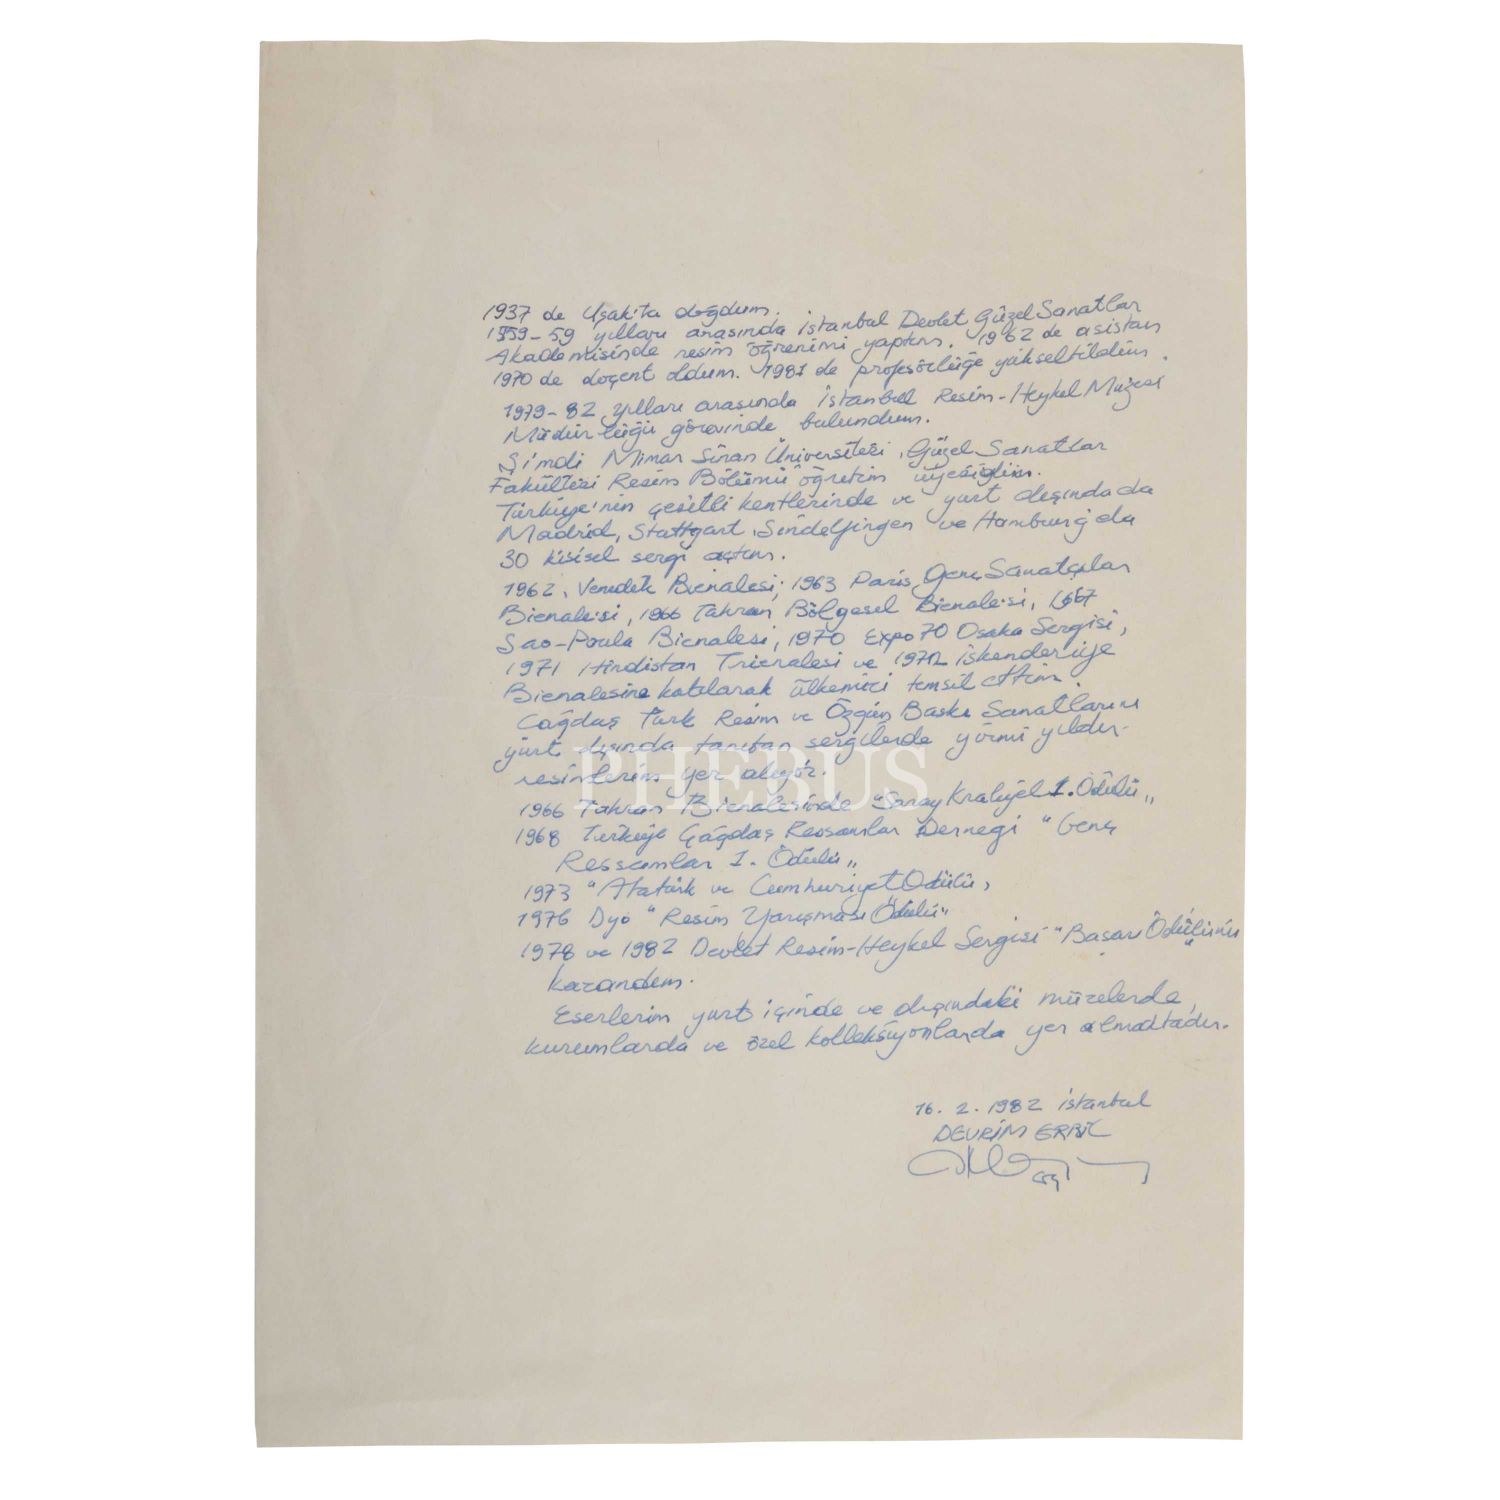 1937 de Uşak'ta doğdum.
1959-59 yılları arasında İstanbul Devlet Güzel Sanatlar
Akademisinde resim öğrenimi yaptım. 1962 de asistan
1970 de doçent oldum. 1981 de profesörlüğe yükseltildim.
1979-82 yılları arasında İstanbul Resim-Heykel Müzesi
Müdürlüğü görevinde bulundum.
Şimdi Mimar Sinan Üniversitesi, Güzel Sanatlar
Fakültesi Resim Bölümü öğretim üyesiyim.
Türkiye'nin çeşitli kentlerinde ve yurt dışında da
Madrid, Stuttgart, Sindelfingen ve Hamburg'da
30 kişisel sergi açtım.
1962, Venedik Bienalesi; 1963 Paris Genç Sanatçılar
Bienalesi, 1966 Tahran Bölgesel Bienalesi, 1967
Sao-Paula Bienalesi, 1970 Expo 70 Osaka Sergisi,
1971 Hindistan Trienalesi ve 1972 İskenderiye
Bienalesine katılarak ülkemizi temsil ettim.
Çağdaş Türk Resim ve Özgün Baskı Sanatlarını
yurt dışında tanıtan sergilerde yirmi yıldır
resimlerim yer alıyor.
PHEBUS
1966 Tahran Bienalesinde "Saray Kraliyet 1. Ödülü"
1968 Türkiye Çağdaş Ressamlar Derneği "Genç
Ressamlar 1. Ödülü"
1973 "Atatürk ve Cumhuriyet Ödülü,
1976 Dyo "Resim Yarışması Ödülü"
1978 ve 1982 Devlet Resim-Heykel Sergisi "Başarı Ödülünü"
kazandım.
Eserlerim yurt içinde ve dışındaki müzelerde,
kurumlarda ve özel kolleksiyonlarda yer almaktadır.
16. 2. 1982 İstanbul
DEVRİM ERBİL